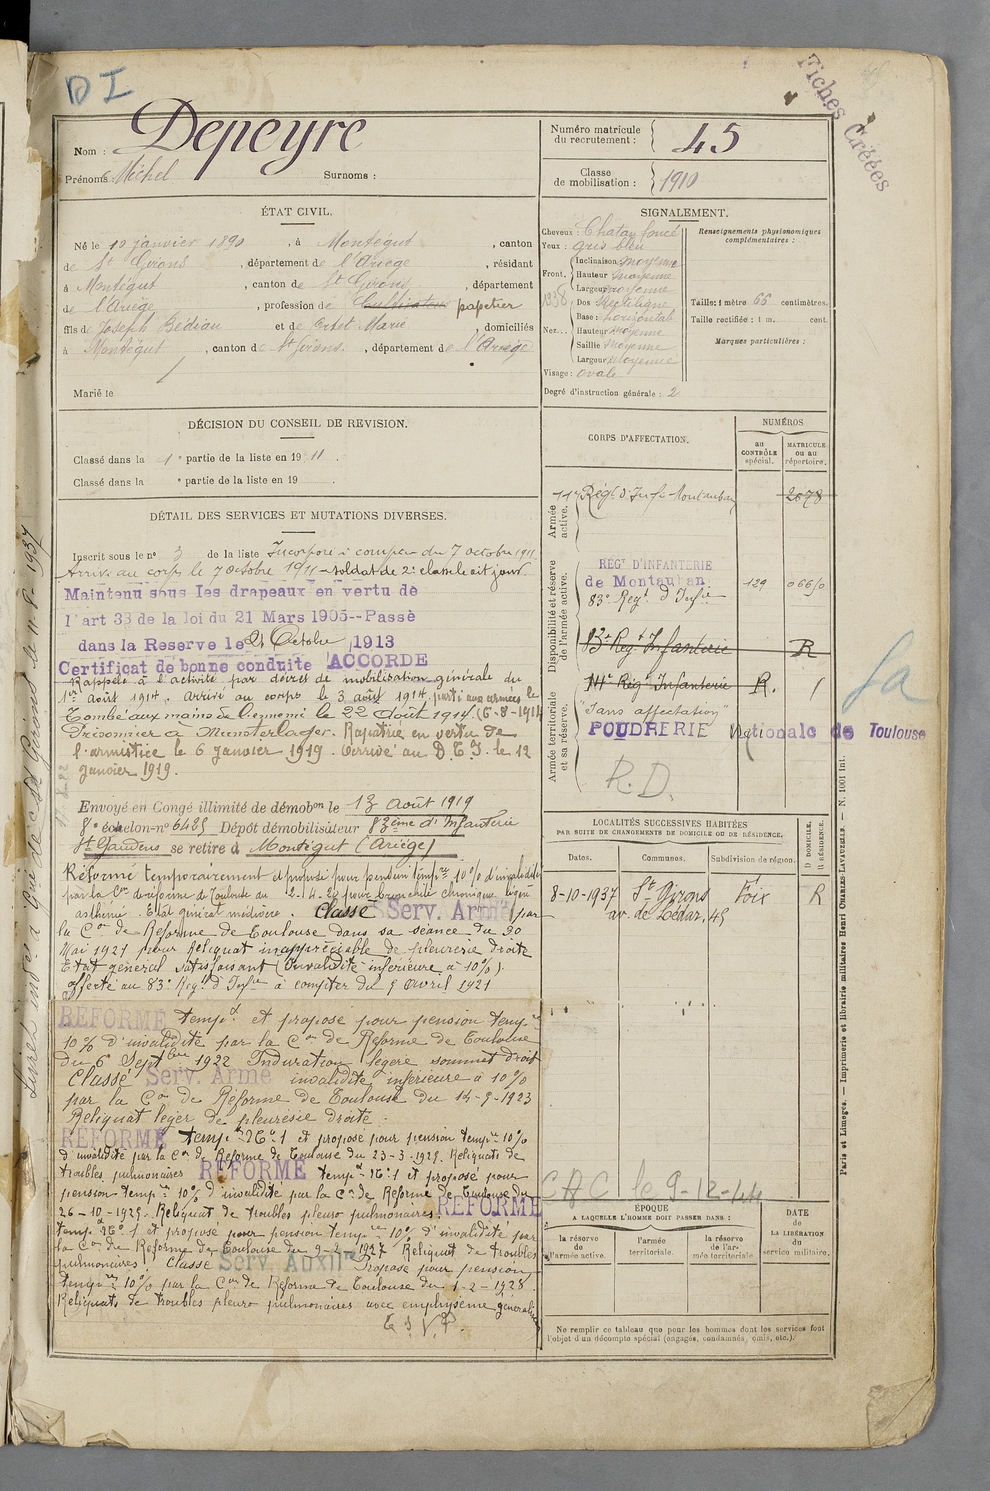 D I
Fiches Créées
Nom : Depeyre
Prénoms : Michel Surnoms :
Numéro matricule du recrutement : 45
Classe de mobilisation : 1910
ÉTAT CIVIL.
Né le 10 janvier 1890, à Montégut, canton
de St Girons, département de l'Ariège, résidant
à Montégut, canton de St Girons, département
de l'Ariège, profession de Cultivateur papetier
fils de Joseph Bédiau et de Ortet Marie, domiciliés
à Montégut, canton de St Girons, département de l'Ariège
Marié le
SIGNALEMENT.
Cheveux : Chatan foncé
Yeux : gris bleu
Front. Inclinaison moyenne
Hauteur moyenne
Largeur moyenne
1938
Nez... Dos Rectiligne
Base : horizontale
Hauteur moyenne
Saillie moyenne
Largeur moyenne
Visage : ovale
Degré d'instruction générale : 2
Renseignements physionomiques complémentaires :
Taille : 1 mètre 66 centimètres.
Taille rectifiée : 1 m. cent.
Marques particulières :
DÉCISION DU CONSEIL DE REVISION.
Classé dans la 1e partie de la liste en 1911.
Classé dans la e partie de la liste en 19
DÉTAIL DES SERVICES ET MUTATIONS DIVERSES.
Inscrit sous le no 3 de la liste Incorporé à compter du 7 octobre 1911
Arrivé au corps le 7 octobre 1911 soldat de 2e classe le dit jour.
Maintenu sous les drapeaux en vertu de
l'art 33 de la loi du 21 Mars 1905--Passé
dans la Reserve le 21 Octobre 1913
Certificat de bonne conduite ACCORDE
Rappelé à l'activité par décret de mobilisation générale du
1er août 1914. Arrivé au corps le 3 août 1914. parti aux armées le
Tombé aux mains de l'ennemi le 22 Août 1914. (6-8-1914
Prisonnier à Munsterlager. Rapatrié en vertu de
l'armistice le 6 janvier 1919. Arrivé au D.T.I. le 12
janvier 1919.
Envoyé en Congé illimité de démobon le 13 Août 1919
8e échelon-no 6425 Dépôt démobilisateur 83ème d'Infanterie
St Gaudens se retire à Montégut (Ariège)
Réformé temporairement et proposé pour pension temp.re 10% d'invalidité
par la Con de réforme de Toulouse au 12.4.20 pour bronchite chronique légère
asthénie. Etat général médiocre. Classé Serv. Armé par
la Con de Réforme de Toulouse dans sa séance du 30
Mai 1921 pour Reliquat inappréciable de pleurésie droite
Etat général satisfaisant (Invalidité inférieure à 10%).
affecté au 83e Régt d'Infie à compter du 5 avril 1921
REFORMÉ tempt et proposé pour pension tempre
10% d'invalidité par la Con de Réforme de Toulouse
du 6 Septbre 1922 Induration légère sommet droit
Classé Serv. Armé invalidité inférieure à 10%
par la Con de Réforme de Toulouse du 14-9-1923
Reliquat léger de pleurésie droite.
REFORMÉ tempt No 1 et proposé pour pension tempre 10%
d'invalidité par la Con de Réforme de Toulouse du 23-3-1925. Reliquats de
troubles pulmonaires REFORMÉ tempt No 1 et proposé pour
pension tempre 10% d'invalidité par la Con de Réforme de Toulouse du
26-10-1925. Reliquat de troubles pleuro pulmonaires. REFORMÉ
tempt No 1 et proposé pour pension tempre 10% d'invalidité par
la Con de Réforme de Toulouse du 9-2-1927 Reliquat de troubles
pulmonaires. Classé Serv. Auxilre Proposé pour pension
tempre 10% par la Con de Réforme de Toulouse du 1-2-1928.
Reliquats de troubles pleuro pulmonaires avec emphysème généralisé
T S V P.
CORPS D'AFFECTATION.
NUMÉROS
au CONTRÔLE spécial.
MATRICULE ou au répertoire.
Armée active.
11e Régt d'Infie Montauban 2678
Disponibilité et réserve de l'armée active.
REGt D'INFANTERIE
de Montauban 129 06650
83e Regt d'Infie
83e Regt Infanterie R
Armée territoriale et sa réserve.
14e Régt Infanterie R. 1
"Sans affectation"
POUDRERIE Nationale de Toulouse
R.D.
Sa
LOCALITÉS SUCCESSIVES HABITÉES
PAR SUITE DE CHANGEMENTS DE DOMICILE OU DE RÉSIDENCE.
Dates. Communes. Subdivision de région. D DOMICILE, R RÉSIDENCE.
8-10-1937 St Girons Foix R
av. de Lédar, 45
CAC le 9-12-44
ÉPOQUE
A LAQUELLE L'HOMME DOIT PASSER DANS :
la réserve de l'armée active.
l'armée territoriale.
la réserve de l'armée territoriale
DATE de LA LIBÉRATION du service militaire.
Ne remplir ce tableau que pour les hommes dont les services font
l'objet d'un décompte spécial (engagés, condamnés, omis, etc.).
Paris et Limoges. — Imprimerie et librairie militaires Henri CHARLES-LAVAUZELLE. — N. 1001 int.